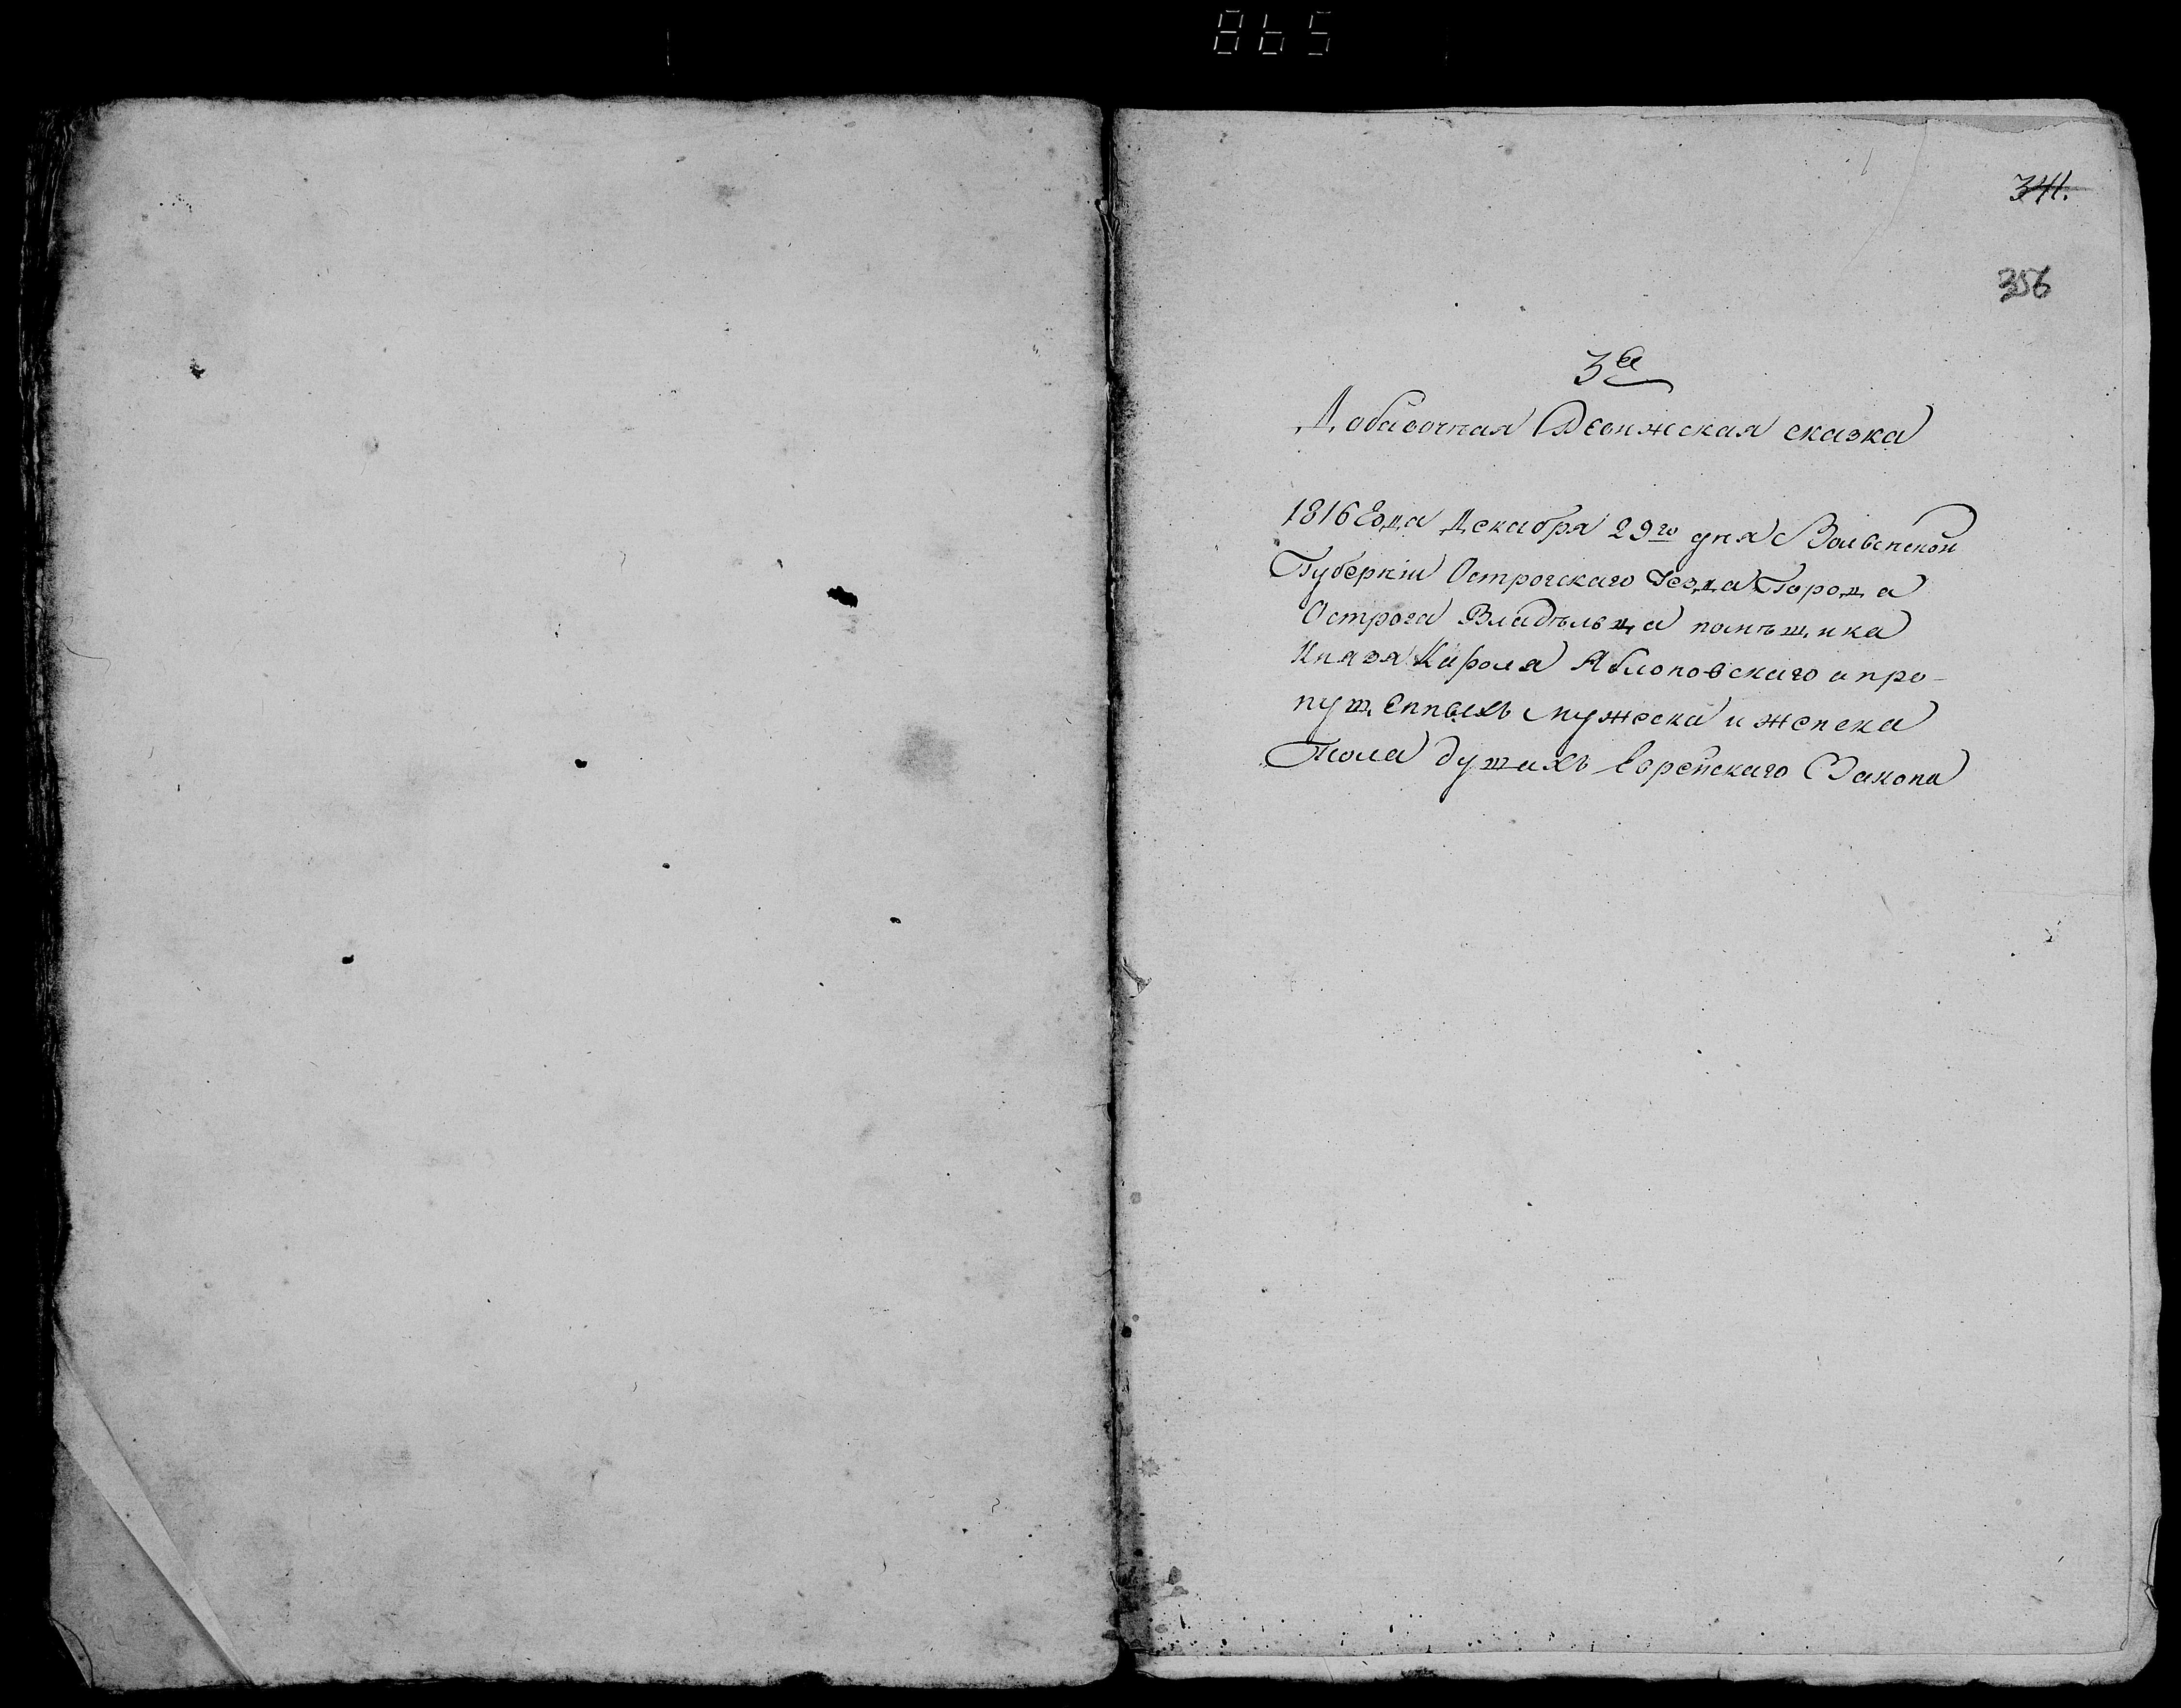 865
341.
356
3я
Добавочная Ревижская сказка
1816 Года Декабря 29го дня Волынской
Губерніи Острогскаго Уезда Города
Острога Владѣльца помѣщика
Князя Кароля Яблоновскаго о про-
пущенныхъ мужеска и женска
Пола душахъ Еврейскаго Закона